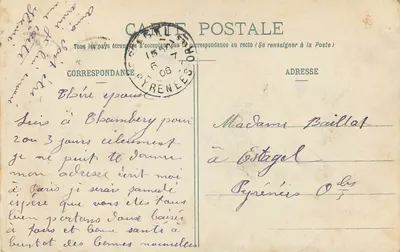 CARTE POSTALE
Tous les pays étrangers n'acceptent pas la correspondance au recto (Se renseigner à la Poste)
CORRESPONDANCE
ADRESSE
ESTAGEL
6 7
08
PYRENEES
Chère épouse
Suis à Chambery pour
2 ou 3 jours seulement
je ne puit te donner
mon adresse
à Paris je serais samedi
espère que vous etes tous
bien portans doux baisés
à tous et bone santé à
bientot des bonnes nouvelles
Madame Baillat
à Estagel
Pyrénées Oles